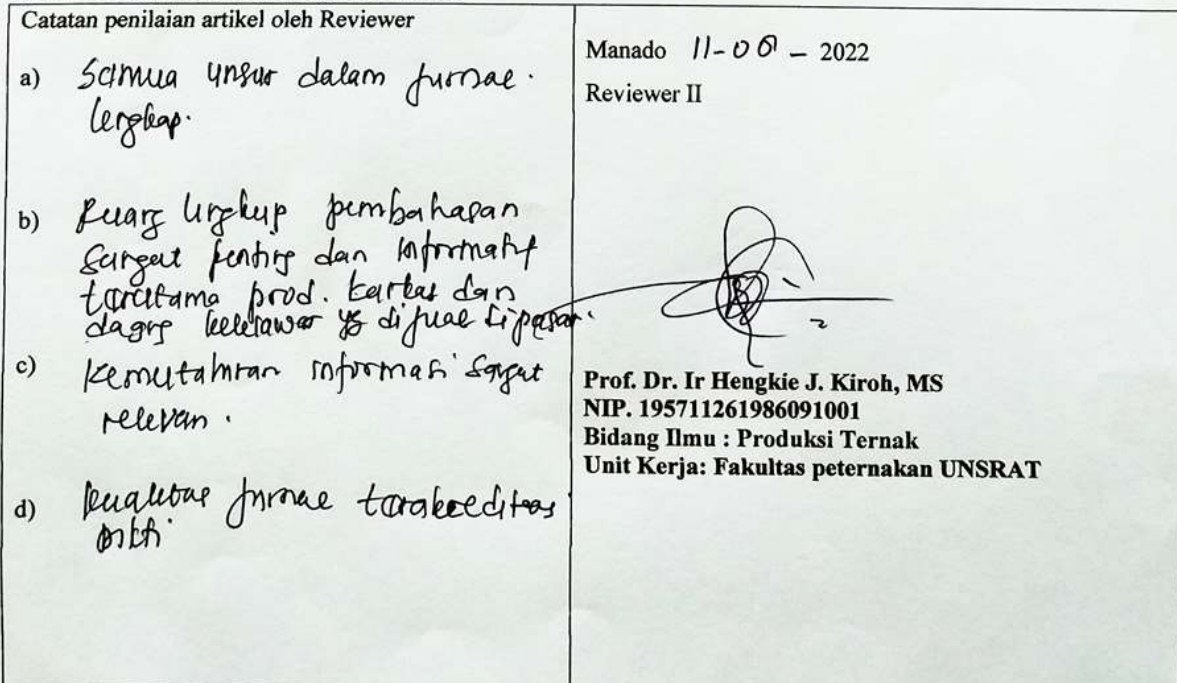 Catatan penilaian artikel oleh Reviewer
a) Semua unsur dalam jurnal
lengkap.
b) Ruang lingkup pembahasan
sangat penting dan informatif
terutama prod. karkas dan
daging kelelawar yg dijual dipasar.
c) Kemutahiran informasi sangat
relevan.
d) Kualitas jurnal terakreditasi
Manado 11- - 2022
Reviewer II
Prof. Dr. Ir Hengkie J. Kiroh, MS
NIP. 195711261986091001
Bidang Ilmu : Produksi Ternak
Unit Kerja: Fakultas peternakan UNSRAT